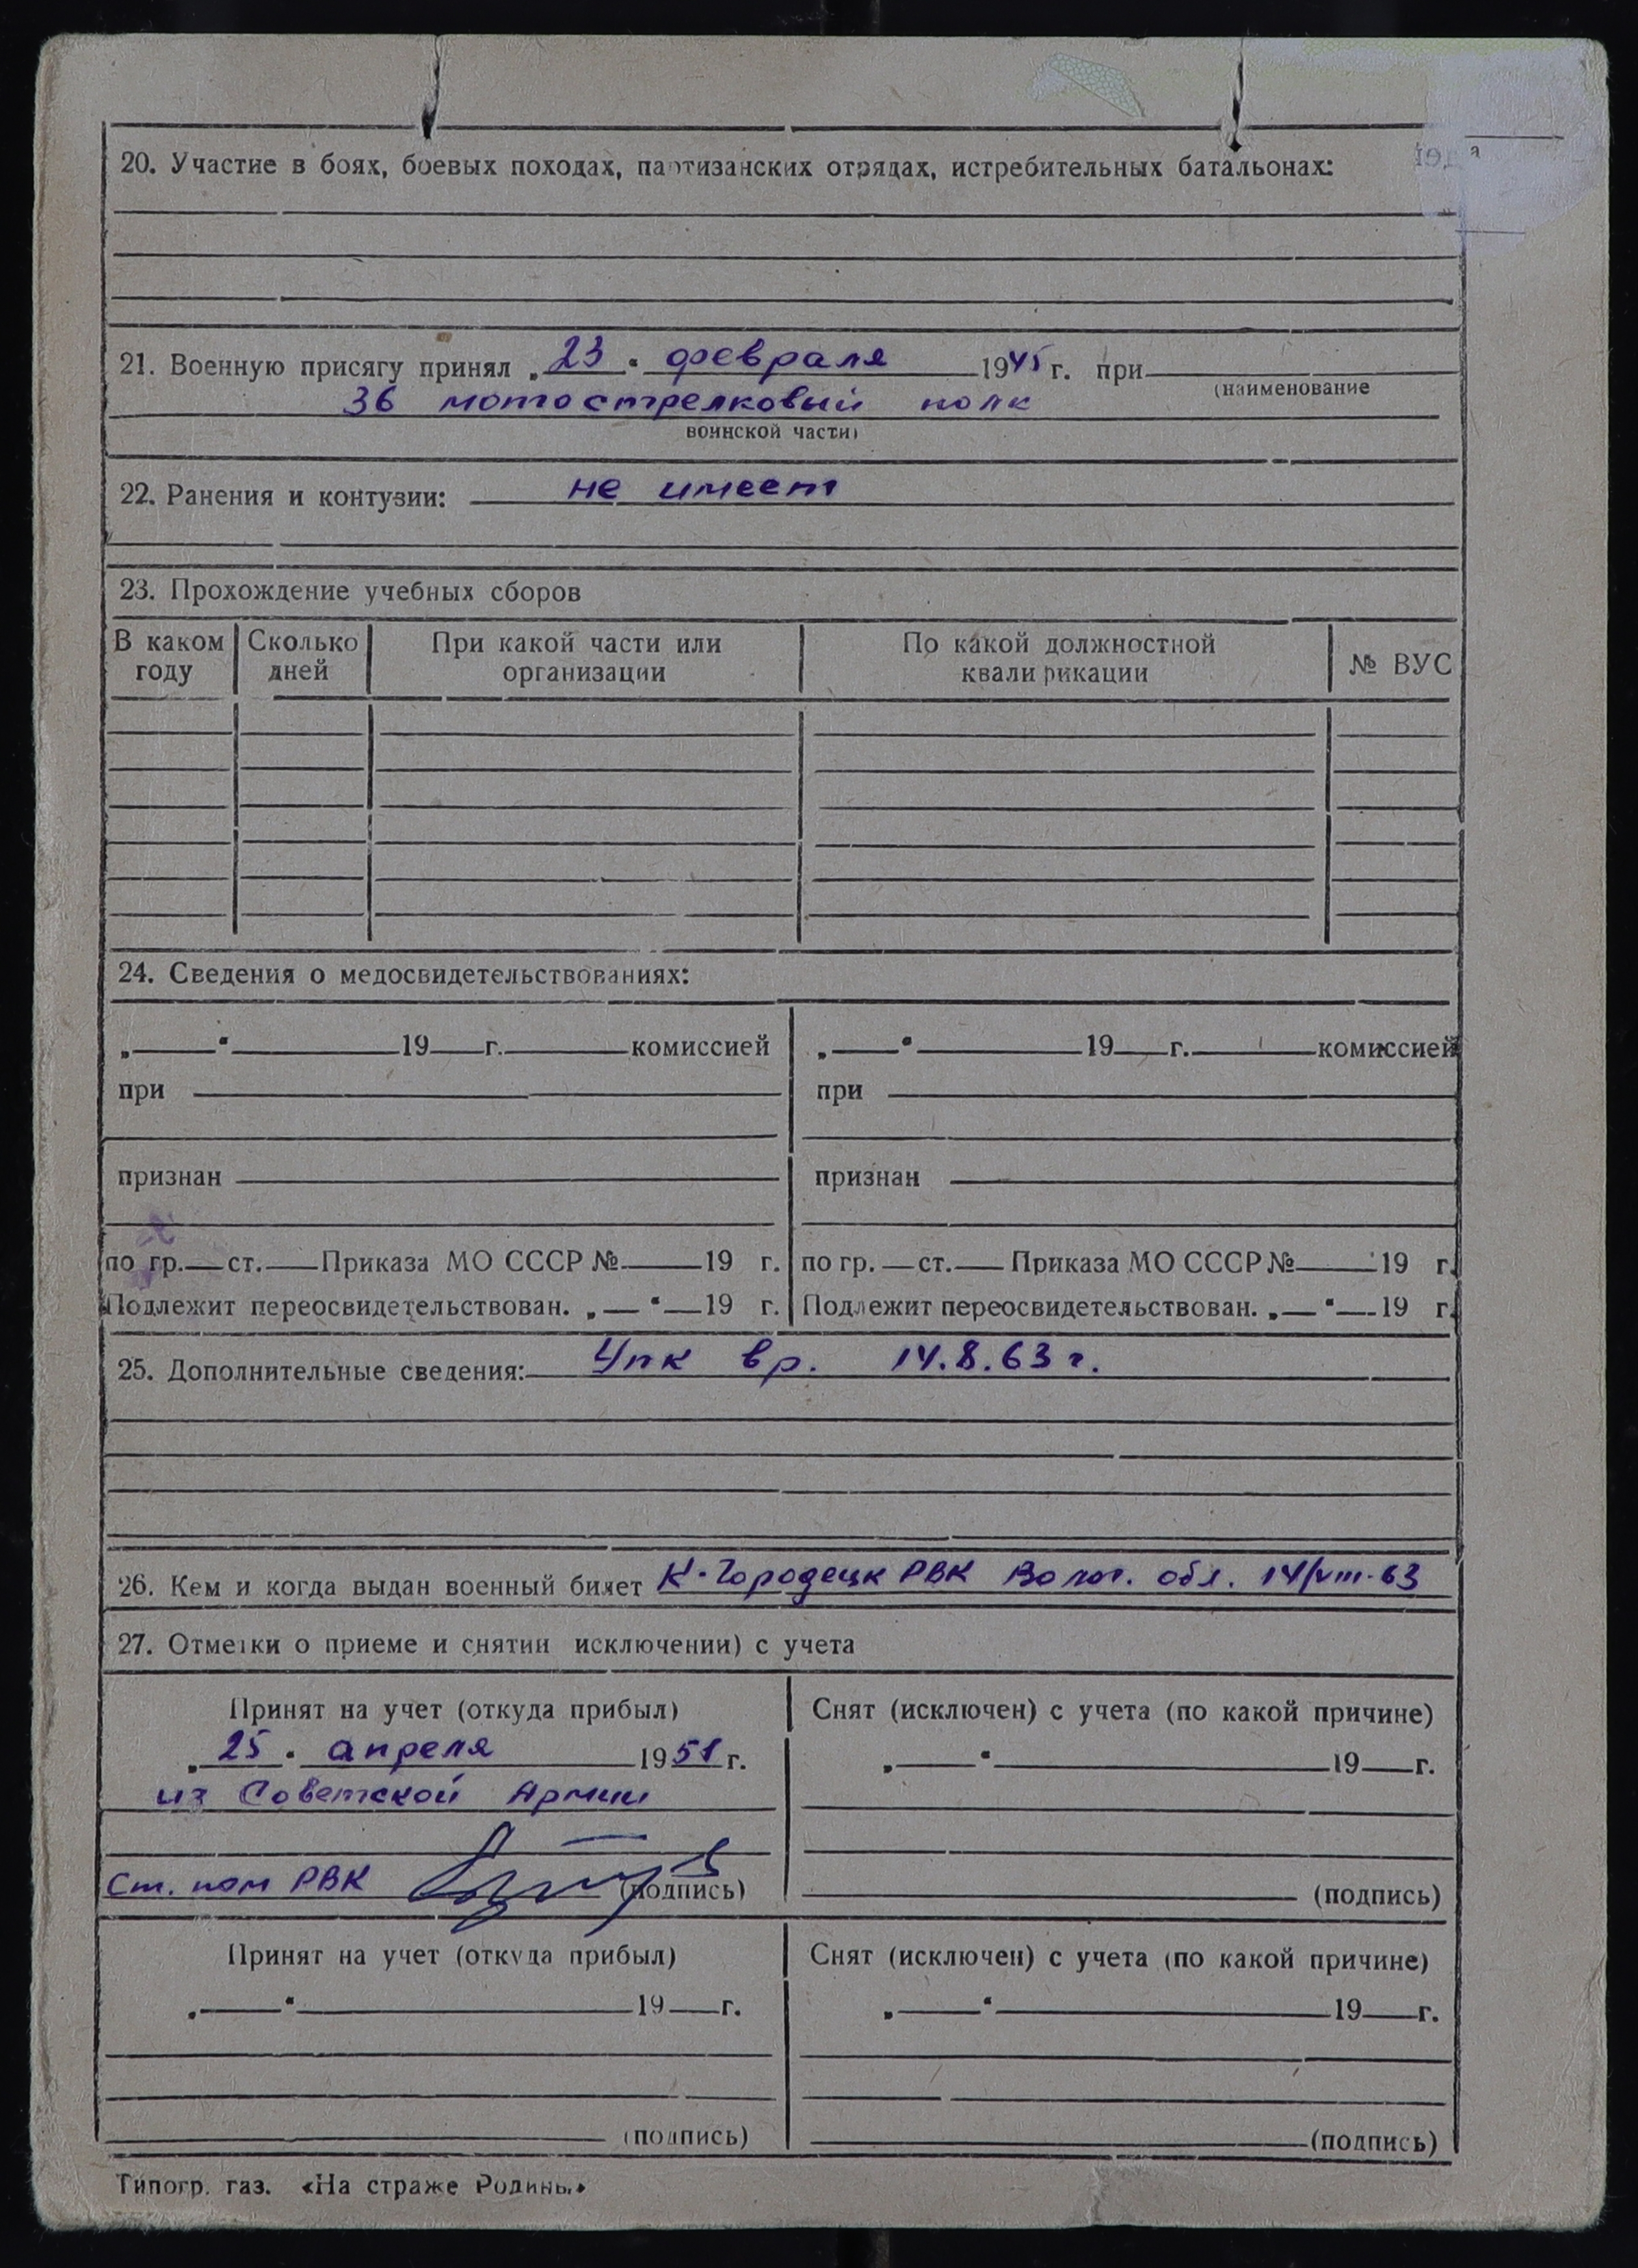 20. Участие в боях, боевых походах, партизанских отрядах, истребительных батальонах:
21. Военную присягу принял „23“ февраля 1945 г. при
(наименование
36 мотострелковый полк
воинской части)
22. Ранения и контузии: не имеет
23. Прохождение учебных сборов
В каком году Сколько дней При какой части или организации По какой должностной квалификации № ВУС
24. Сведения о медосвидетельствованиях:
„ “ 19 г. комиссией „ “ 19 г. комиссией
при при
признан признан
по гр. ст. Приказа МО СССР № 19 г. по гр. ст. Приказа МО СССР № 19 г.
Подлежит переосвидетельствован. „ “ 19 г. Подлежит переосвидетельствован. „ “ 19 г.
25. Дополнительные сведения: Упк вр. 14.8.63 г.
26. Кем и когда выдан военный билет К-Городецк РВК Волог. обл. 14/VIII-63
27. Отметки о приеме и снятии исключении) с учета
Принят на учет (откуда прибыл) Снят (исключен) с учета (по какой причине)
„25“ апреля 1951 г. „ “ 19 г.
из Советской Армии
Ст. пом РВК (подпись) (подпись)
Принят на учет (откуда прибыл) Снят (исключен) с учета (по какой причине)
„ “ 19 г. „ “ 19 г.
(подпись) (подпись)
Типогр. газ. «На страже Родины»